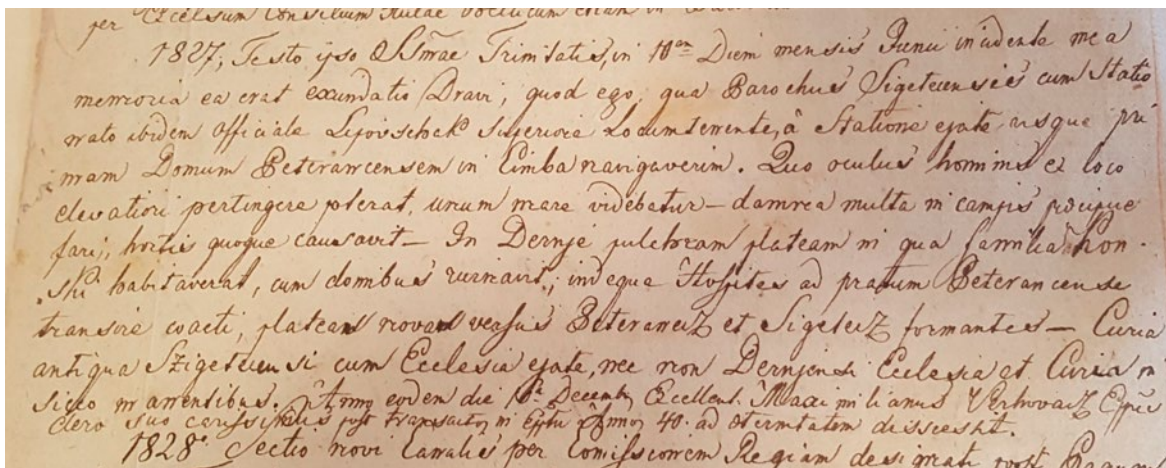 per Excelsum Consilium Aulae Bellicum etiam in
1827; Festo ipso SSmae Trinitatis, in 10am Diem mensis Junii incidente mea
memoria ea erat exundatio Dravi, quod ego, qua Parochus Sigetecensis cum Statio
nato ibidem Officiale Superiore Locumtenente, à Statione ejate usque pri
mam Domum Peteranecensem in Cimba navigaverim. Quo oculus hominis ex loco
elevatiori pertingere poterat, unum mare videbatur – damna multa in campis praecipue
fari, hortis quoque causavit – In Dernje pulchram plateam in qua familia Kon-
ski habitaverat, cum domibus ruinavit, indeque Hospites ad pratum Peterancense
transire coacti, plateam novam versus Peteranecz et Sigetecz formantes – Curia
antiqua Szigetecensi cum Ecclesia ejate, nec non Dernjensi Ecclesia et Curia in
sicco manentibus. Anno eodem die Decemb. Excellent. Maximilianus Verhovacz Eppus
clero suo carissimus post transactos in Epptu Annos 40. ad aeternitatem discessit.
1828° Sectio novi Canalis per Comissionem Regiam designati post